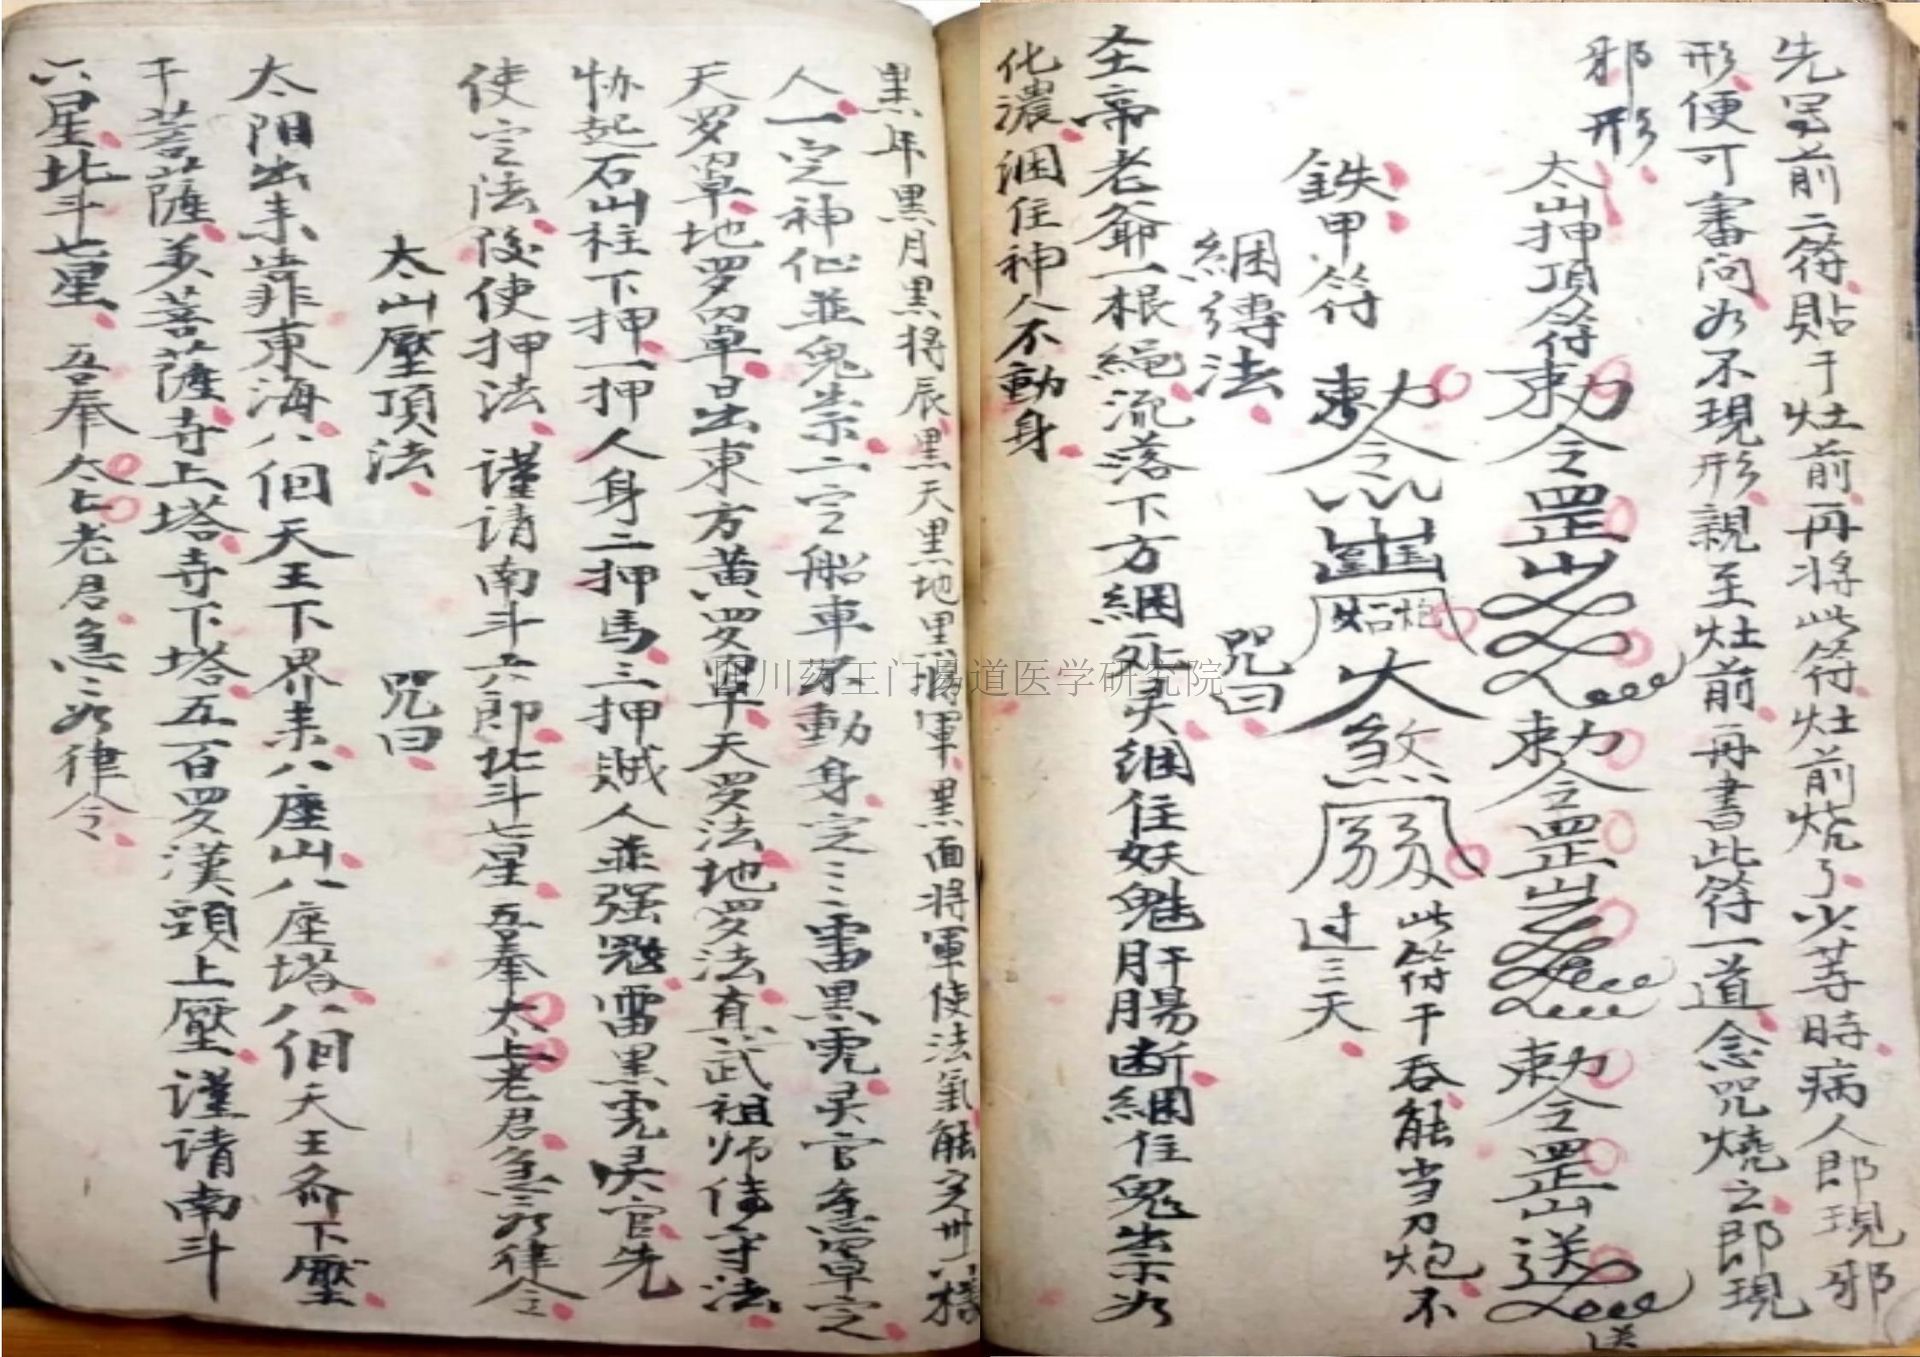 先写前二符貼于灶前再将此符灶前烧了少等時病人即現邪
形便可審问如不現形親至灶前再書此符一道念咒燒之即現
邪形
太山押頂符
敕令罡山
敕令罡山
敕令罡山送
送
鉄甲符
敕令
大煞
过三天
此符干吞能当刀炮不
綑縛法
咒曰
圣帝老爺一根繩流落下方綑死灵綑住妖魁肝肠断綑住鬼祟如
化濃綑住神人不動身
黑年黑月黑将辰黑天黑地黑将軍黑面将軍使法氣能変卅八樣
人一定神仙並鬼祟二定船車不動身定三雷黑虎灵官急罩定
天罗罩地罗罩日出東方黄罗罩天罗法地罗法真武祖师传守法
协起石山柱下押一押人身二押馬三押賊人並强寇雷黑虎灵官先
使定法後使押法謹请南斗六郎北斗七星吾奉太上老君急急如律令
太山壓頂法
咒曰
太阳出来靠東海八個天王下界来八座山八座塔八個天王斋下壓
千菩薩万菩薩寺上塔寺下塔五百罗漢頭上壓謹请南斗
六星北斗七星吾奉太上老君急急如律令
四川药王门易道医学研究院